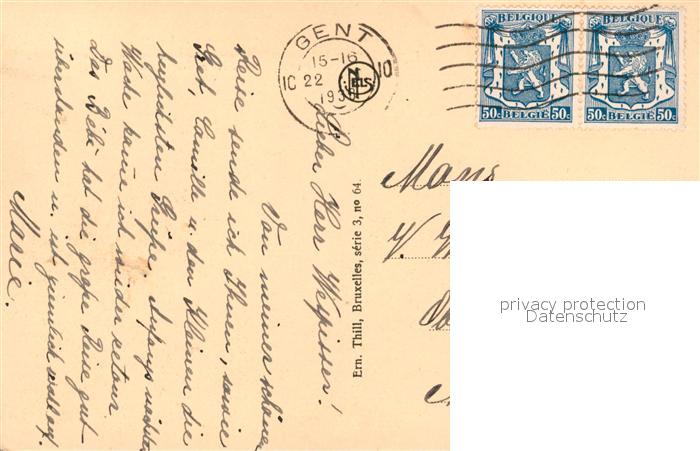 GENT
15-16
10 22 10
193
NELS
BELGIQUE
50c BELGIË 50c
BELGIQUE
50c BELGIË 50c
Lieber Herr Wespisser!
Von meiner schönen
Reise sende ich Ihnen, sowie
Camille u. den Kleinen die
herzlichsten Grüße. Anfangs nächster
Woche kehre ich wieder retour
Das Bébé hat die große Reise gut
überstanden u. ist ziemlich wohlauf.
Marie.
Ern. Thill, Bruxelles, série 3, no 64.
Mons
V. W
privacy protection
Datenschutz